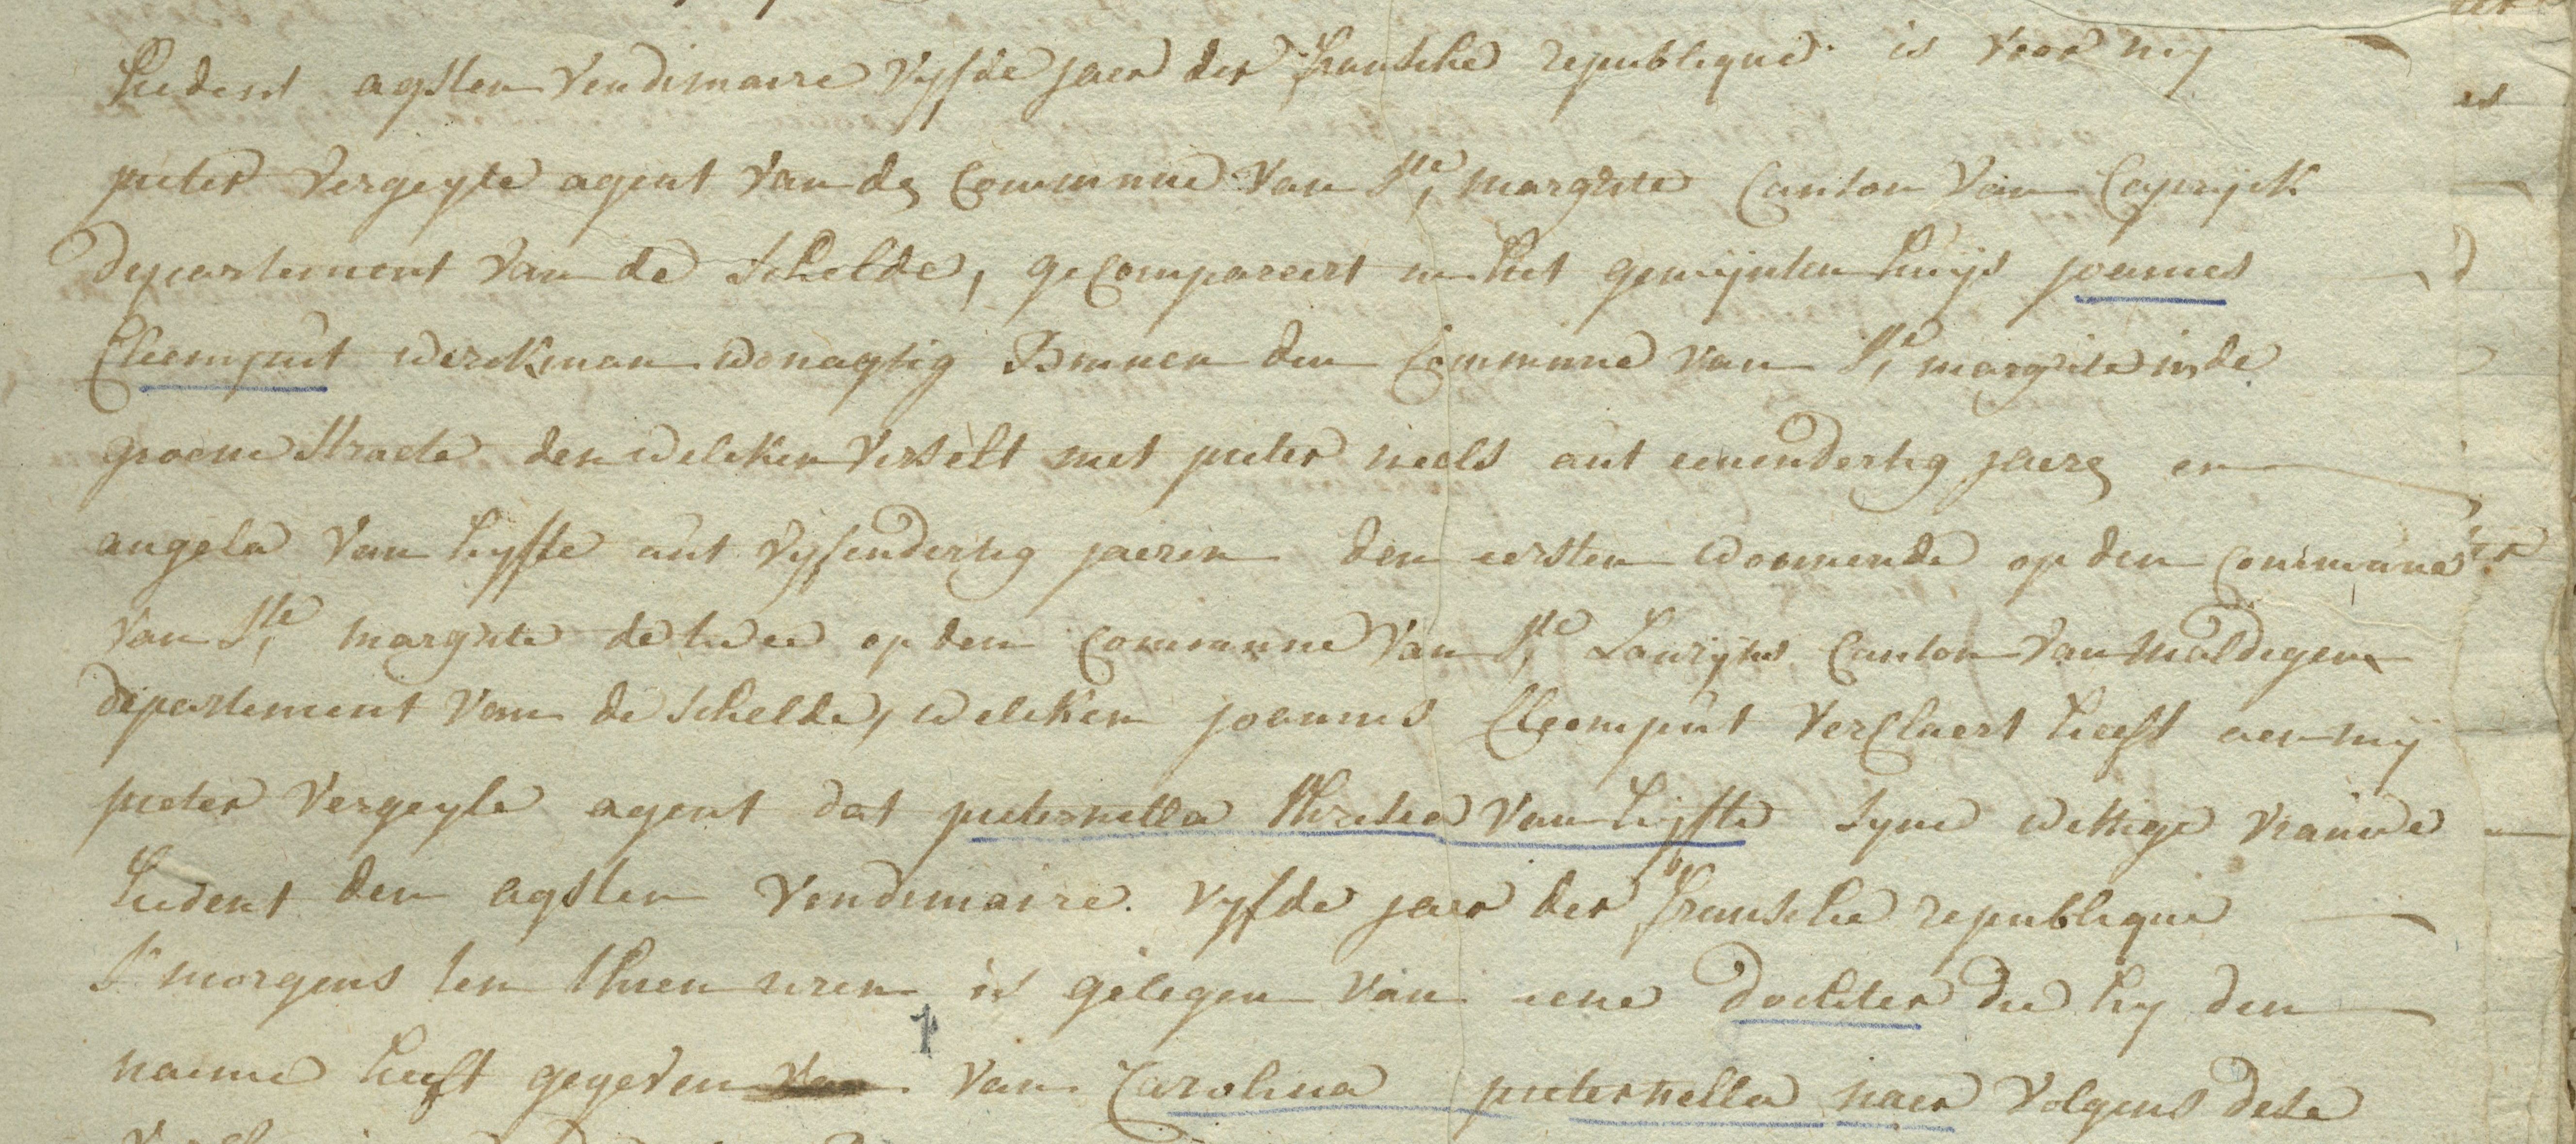 hedent agsten Vendimaire Vyfde jaer der fransche republique is voor mij
pieter Vergeyle agent van de Commune van Ste margriete Canton van Capryck
departement van de Schelde, gecompareert in het gemijnten huijs joannes
Cleemput werckman wonagtig Binnen den Commune van Ste margriete in de
groene straete den welcken verselt met pieter neels out eenendertig jaere en
angela van hyfte out vyfendertig jaeren den eersten woonende op den Commune
van Ste margriete de twee op den Commune van Ste Lourijns Canton van Maldegem
departement van de Schelde, welcken joannes Cleemput verclaert heeft aen mij
pieter Vergeyle agent dat pieternella theresia van hijfte syne wettige vrauwe
hedent den agsten Vendimaire vyfde jaer der fransche republique
s morgens ten thien uren is gelegen van eene dochter die hy den
naeme heeft gegeven van Carolina pieternella naer volgens dese